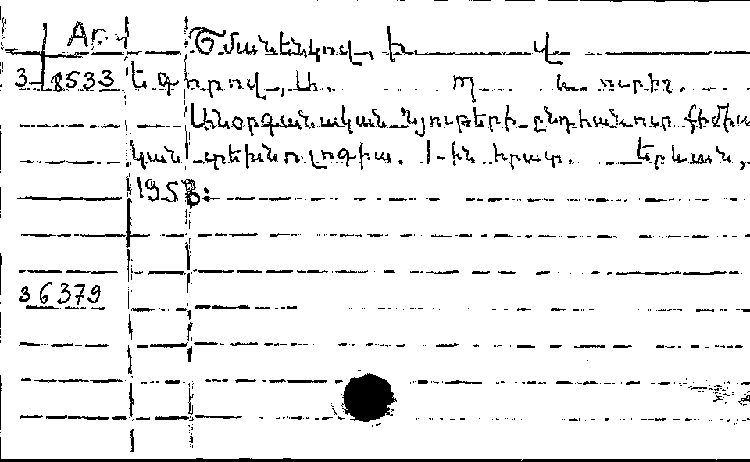 Արմ
Օժմանենկով, Խ. Վ
3 18533 Եգորով, Ա. Պ և ուրիշ.
Անօրգանական նյութերի ընդհանուր քիմիա
կան տեխնոլոգիա. 1-ին հրատ. Երևան,
195
36379